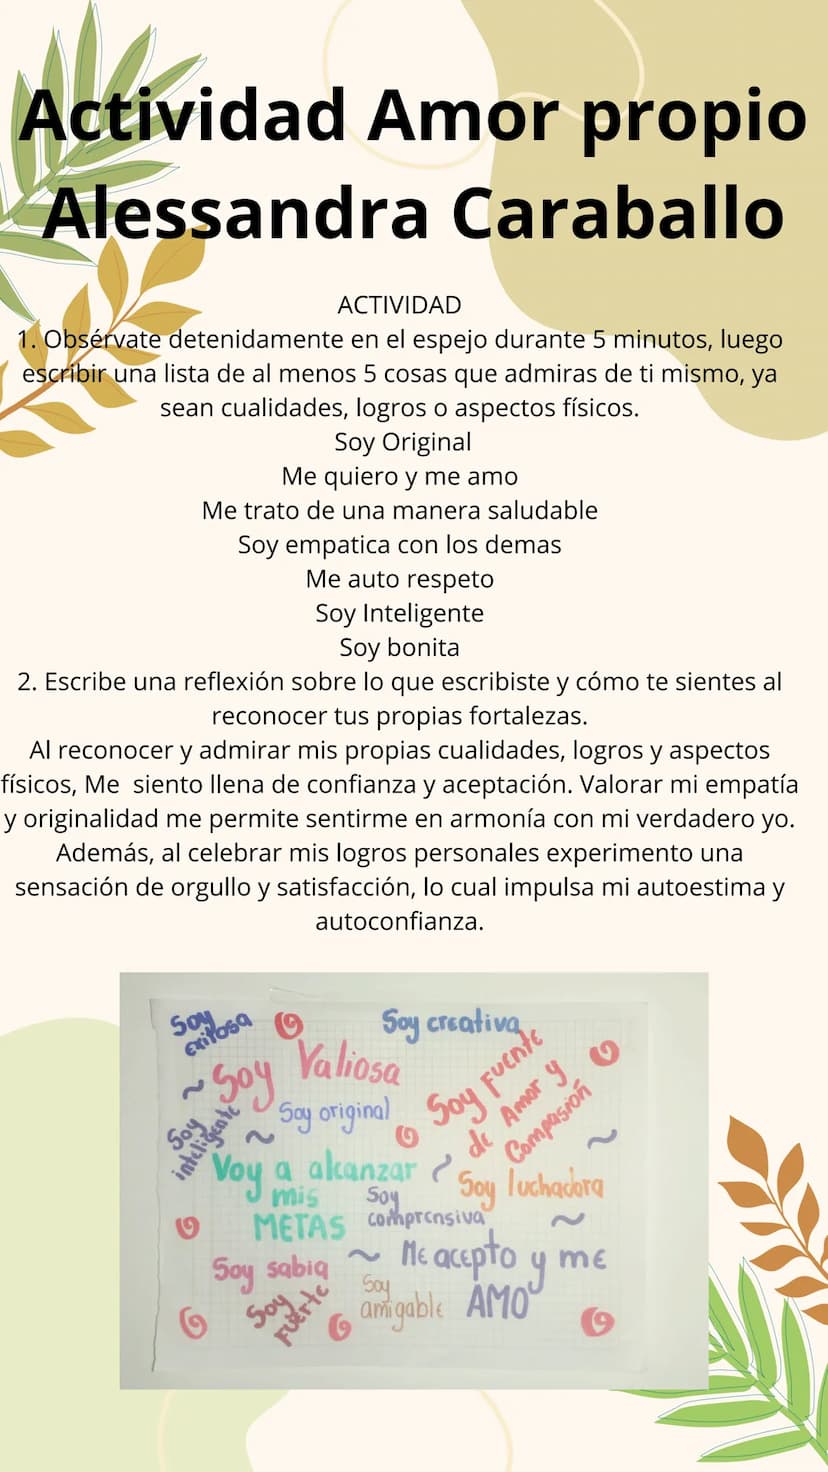 Actividad Amor propio
Alessandra Caraballo
ACTIVIDAD
1. Obsérvate detenidamente en el espejo durante 5 minutos, luego
escribir una lista de al menos 5 cosas que admiras de ti mismo, ya
sean cualidades, logros o aspectos físicos.
Soy Original
Me quiero y me amo
Me trato de una manera saludable
Soy empatica con los demas
Me auto respeto
Soy Inteligente
Soy bonita
2. Escribe una reflexión sobre lo que escribiste y cómo te sientes al
reconocer tus propias fortalezas.
Al reconocer y admirar mis propias cualidades, logros y aspectos
físicos, Me  siento llena de confianza y aceptación. Valorar mi empatía
y originalidad me permite sentirme en armonía con mi verdadero yo.
Además, al celebrar mis logros personales experimento una
sensación de orgullo y satisfacción, lo cual impulsa mi autoestima y
autoconfianza.
Soy
exitosa
Soy creativa
Soy Valiosa
Soy Fuente
de Amor y
Compasión
Soy original
Soy
inteligente
Voy a alcanzar
mis
METAS
Soy luchadora
Soy
comprensiva
Me acepto y me
AMO
Soy sabia
Soy
Fuerte
Soy
amigable